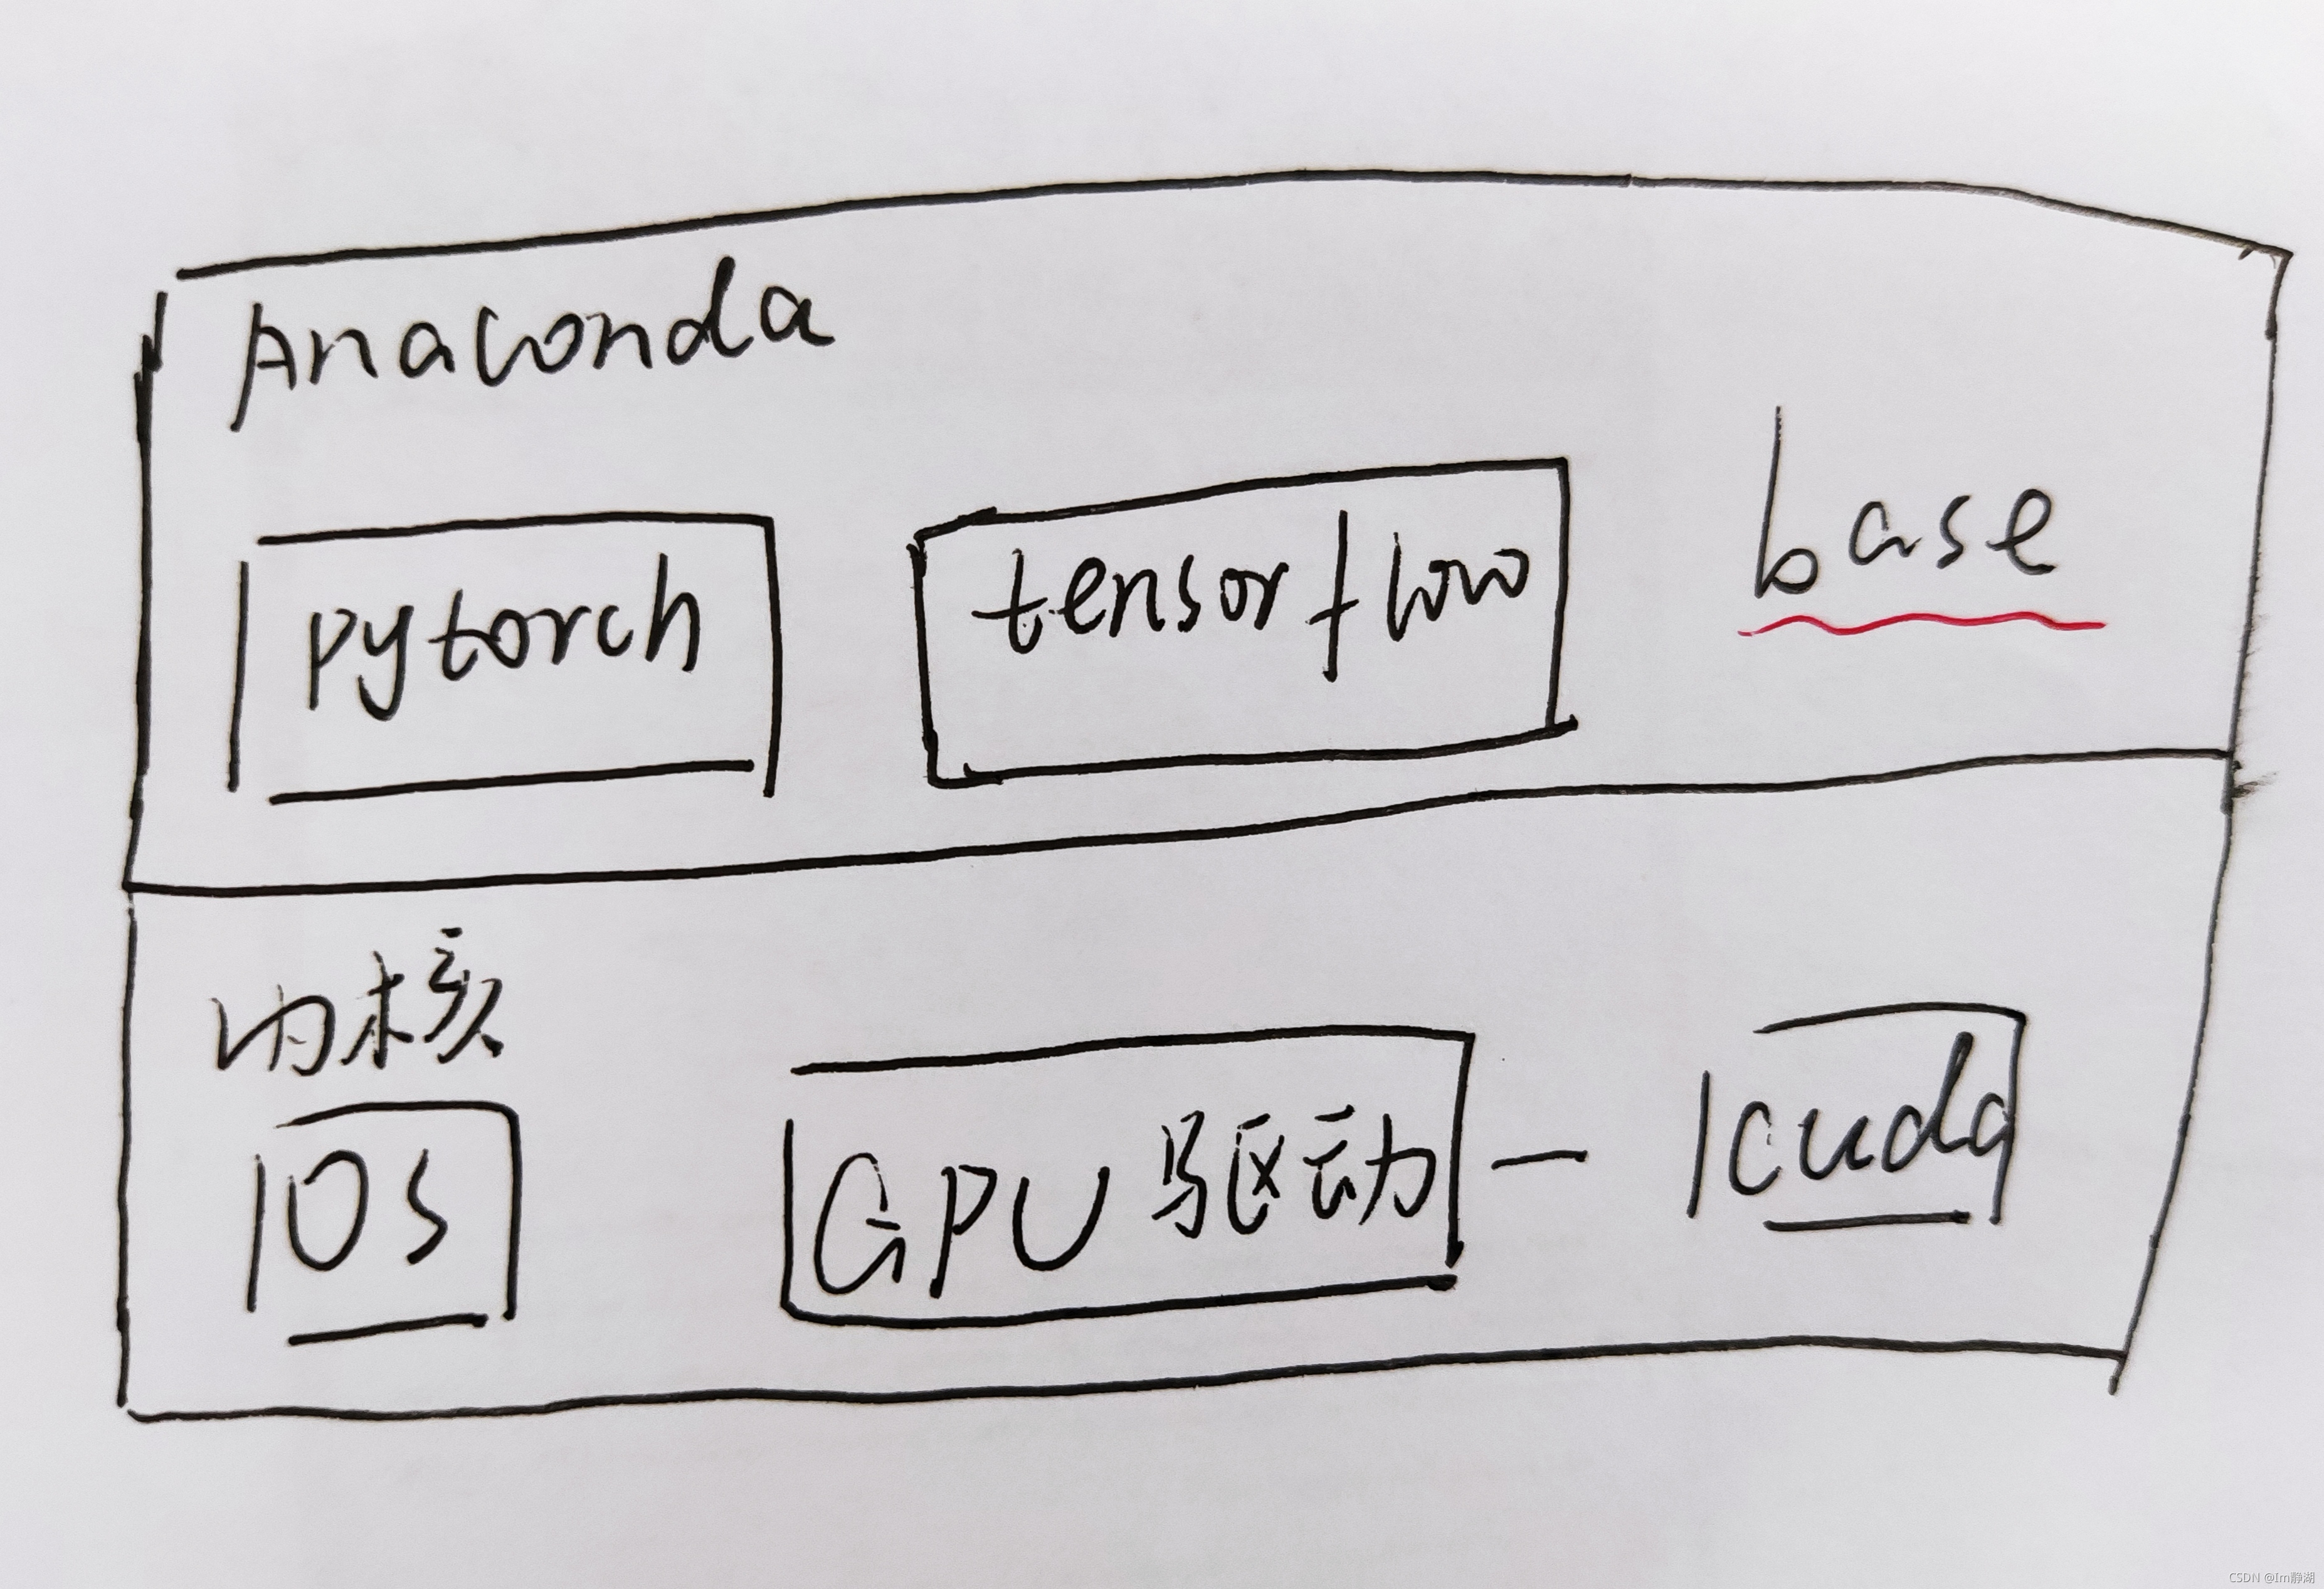 Anaconda
pytorch
tensorflow
base
内核
OS
GPU驱动
cuda
CSDN @Im静湖